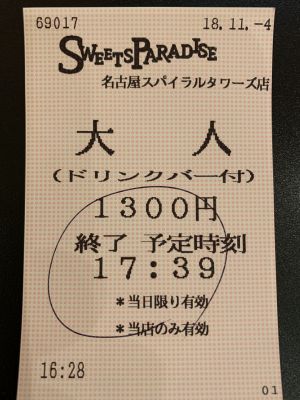 69017 18.11.-4
SWEETSPARADISE
名古屋スパイラルタワーズ店
大 人
(ドリンクバー付)
1300円
終了 予定時刻
17:39
*当日限り有効
*当店のみ有効
16:28
01